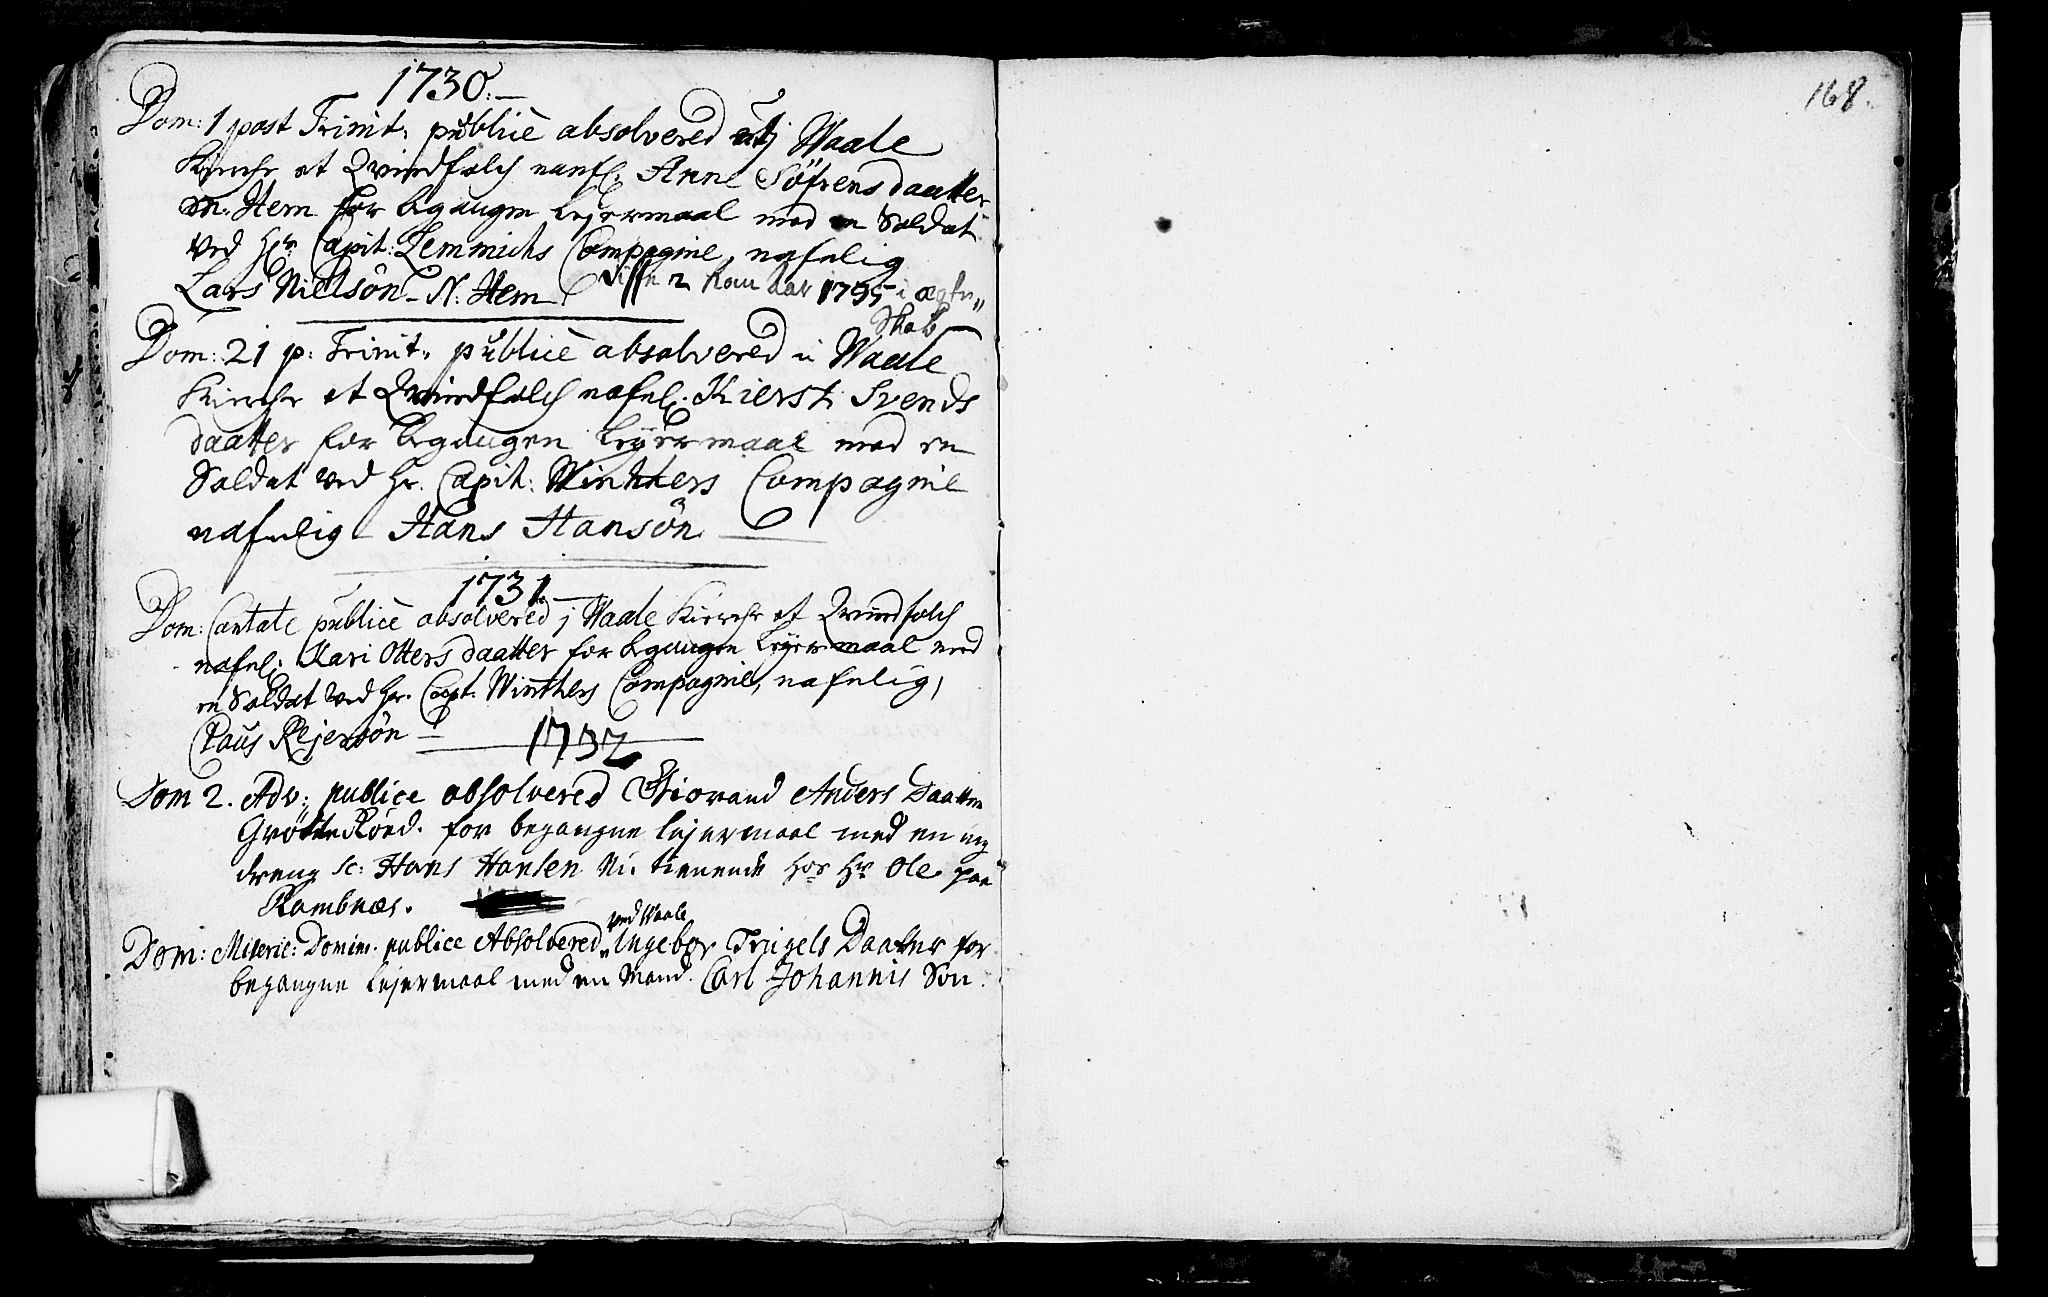 1730.
Dom: 1 post Trinit: publicè absolvered udj Waale
Kirche et Qvindfolch nafnl: Anne Söfrensdaatter
N. Hem for begangen Lejermaal med en Soldat
ved Hr Capit: Lemmichs Compagnie, nafnlig
Lars Nielsön N: Hem. disse 2 kom Aar 1735 i ægte-
skab
Dom: 21 p: Trinit: publicè absolvered i Waale
Kirche et Qvindfolch nafnl: Kiersti Svends
daatter for begangen Leyermaal med en
Soldat ved Hr. Capit: Winthers Compagnie
nafnlig Hans Hansön
1731.
Dom: Cantate publicè absolvered j Waale Kirche et Qvindfolch
nafnl: Kari Ottersdaatter for begangen Leyermaal med
en Soldat ved Hr. Capt. Winthers Compagnie, nafnlig,
Claus Rejersön
1732
Dom 2. Adv: publice absolvered Giorand Anders Daatter
Grötteröed. for begangne lejermaal med en ung
dreng sc: Hans Hansen Ni. tienende hos Hr Ole paa
Rambnæs.
ved Waale
Dom: Miseric: Domini. publice Absolvered Ingebor Trugels Daatter for
begangne lejermaal med en Mand. Carl Johannis Søn.
168.